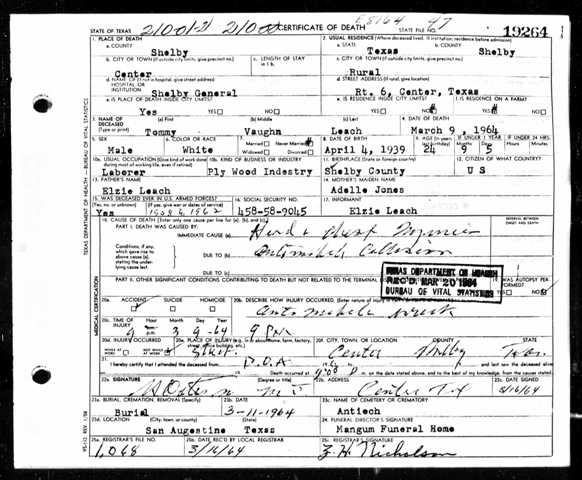 21001-21 2102 E8164 97
STATE OF TEXAS CERTIFICATE OF DEATH STATE FILE NO. 19264
1. PLACE OF DEATH 2. USUAL RESIDENCE (Where deceased lived. If institution: residence before admission)
a. COUNTY Shelby a. STATE Texas b. COUNTY Shelby
b. CITY OR TOWN (If outside city limits, give precinct no.) c. LENGTH OF STAY in 1 b. c. CITY OR TOWN (If outside city limits, give precinct no.)
Center Rural
d. NAME OF (If not in hospital, give street address) HOSPITAL OR INSTITUTION d. STREET ADDRESS (If rural, give location)
Shelby General Rt. 6, Center, Texas
e. IS PLACE OF DEATH INSIDE CITY LIMITS? e. IS RESIDENCE INSIDE CITY LIMITS? f. IS RESIDENCE ON A FARM?
Yes YES NO YES NO
3. NAME OF DECEASED (a) First (b) Middle (c) Last 4. DATE OF DEATH
(Type or print) Tommy Vaughn Leach March 9, 1964
5. SEX 6. COLOR OR RACE 7. Married Never Married 8. DATE OF BIRTH 9. AGE IF UNDER 1 YEAR IF UNDER 24 HRS.
Male White Widowed Divorced April 4, 1939 24 9 5
10a. USUAL OCCUPATION (Give kind of work done 10b. KIND OF BUSINESS OR INDUSTRY 11. BIRTHPLACE (State or foreign country) 12. CITIZEN OF WHAT COUNTRY?
during most of working life, even if retired)
Laborer Ply Wood Indestry Shelby County U S
13. FATHER'S NAME 14. MOTHER'S MAIDEN NAME
Elzie Leach Adelle Jones
15. WAS DECEASED EVER IN U.S. ARMED FORCES? 16. SOCIAL SECURITY NO. 17. INFORMANT
(Yes, no, or unknown) (If yes, give war or dates of service)
Yes 458-58-9045 Elzie Leach
18. CAUSE OF DEATH (Enter only one cause per line for (a), (b), and (c).)
PART I. DEATH WAS CAUSED BY:
IMMEDIATE CAUSE (a) Head & Chest Injuries
Conditions, if any, which gave rise to above cause (a), stating the underlying cause last.
DUE TO (b) Automobile Collision
DUE TO (c)
PART II. OTHER SIGNIFICANT CONDITIONS CONTRIBUTING TO DEATH BUT NOT RELATED TO THE TERMINAL
TEXAS DEPARTMENT OF HEALTH
REC'D MAR 20 1964
BUREAU OF VITAL STATISTICS
20a. ACCIDENT SUICIDE HOMICIDE 20b. DESCRIBE HOW INJURY OCCURRED.
Automobile wreck
20c. TIME OF INJURY Hour Month Day Year
9 p.m. 3 9-64 9 PM
20d. INJURY OCCURRED 20e. PLACE OF INJURY 20f. CITY, TOWN, OR LOCATION COUNTY STATE
Center Shelby Tex.
21. I hereby certify that I attended the deceased from D.O.A.
Death occurred at 9:00 P m. on the date stated above, and to the best of my knowledge, from the causes stated.
22a. SIGNATURE (Degree or title) 22b. ADDRESS 22c. DATE SIGNED
Center Tx
23a. BURIAL, CREMATION, REMOVAL (Specify) 23b. DATE 23c. NAME OF CEMETERY OR CREMATORY
Burial 3-11-1964 Antioch
23d. LOCATION (City, town, or county) (State) 24. FUNERAL DIRECTOR'S SIGNATURE
San Augustine Texas Mangum Funeral Home
25a. REGISTRAR'S FILE NO. 25b. DATE REC'D BY LOCAL REGISTRAR 25c. REGISTRAR'S SIGNATURE
1,068 3/16/64 Z. H. Nicholson
TEXAS DEPARTMENT OF HEALTH - BUREAU OF VITAL STATISTICS
MEDICAL CERTIFICATION